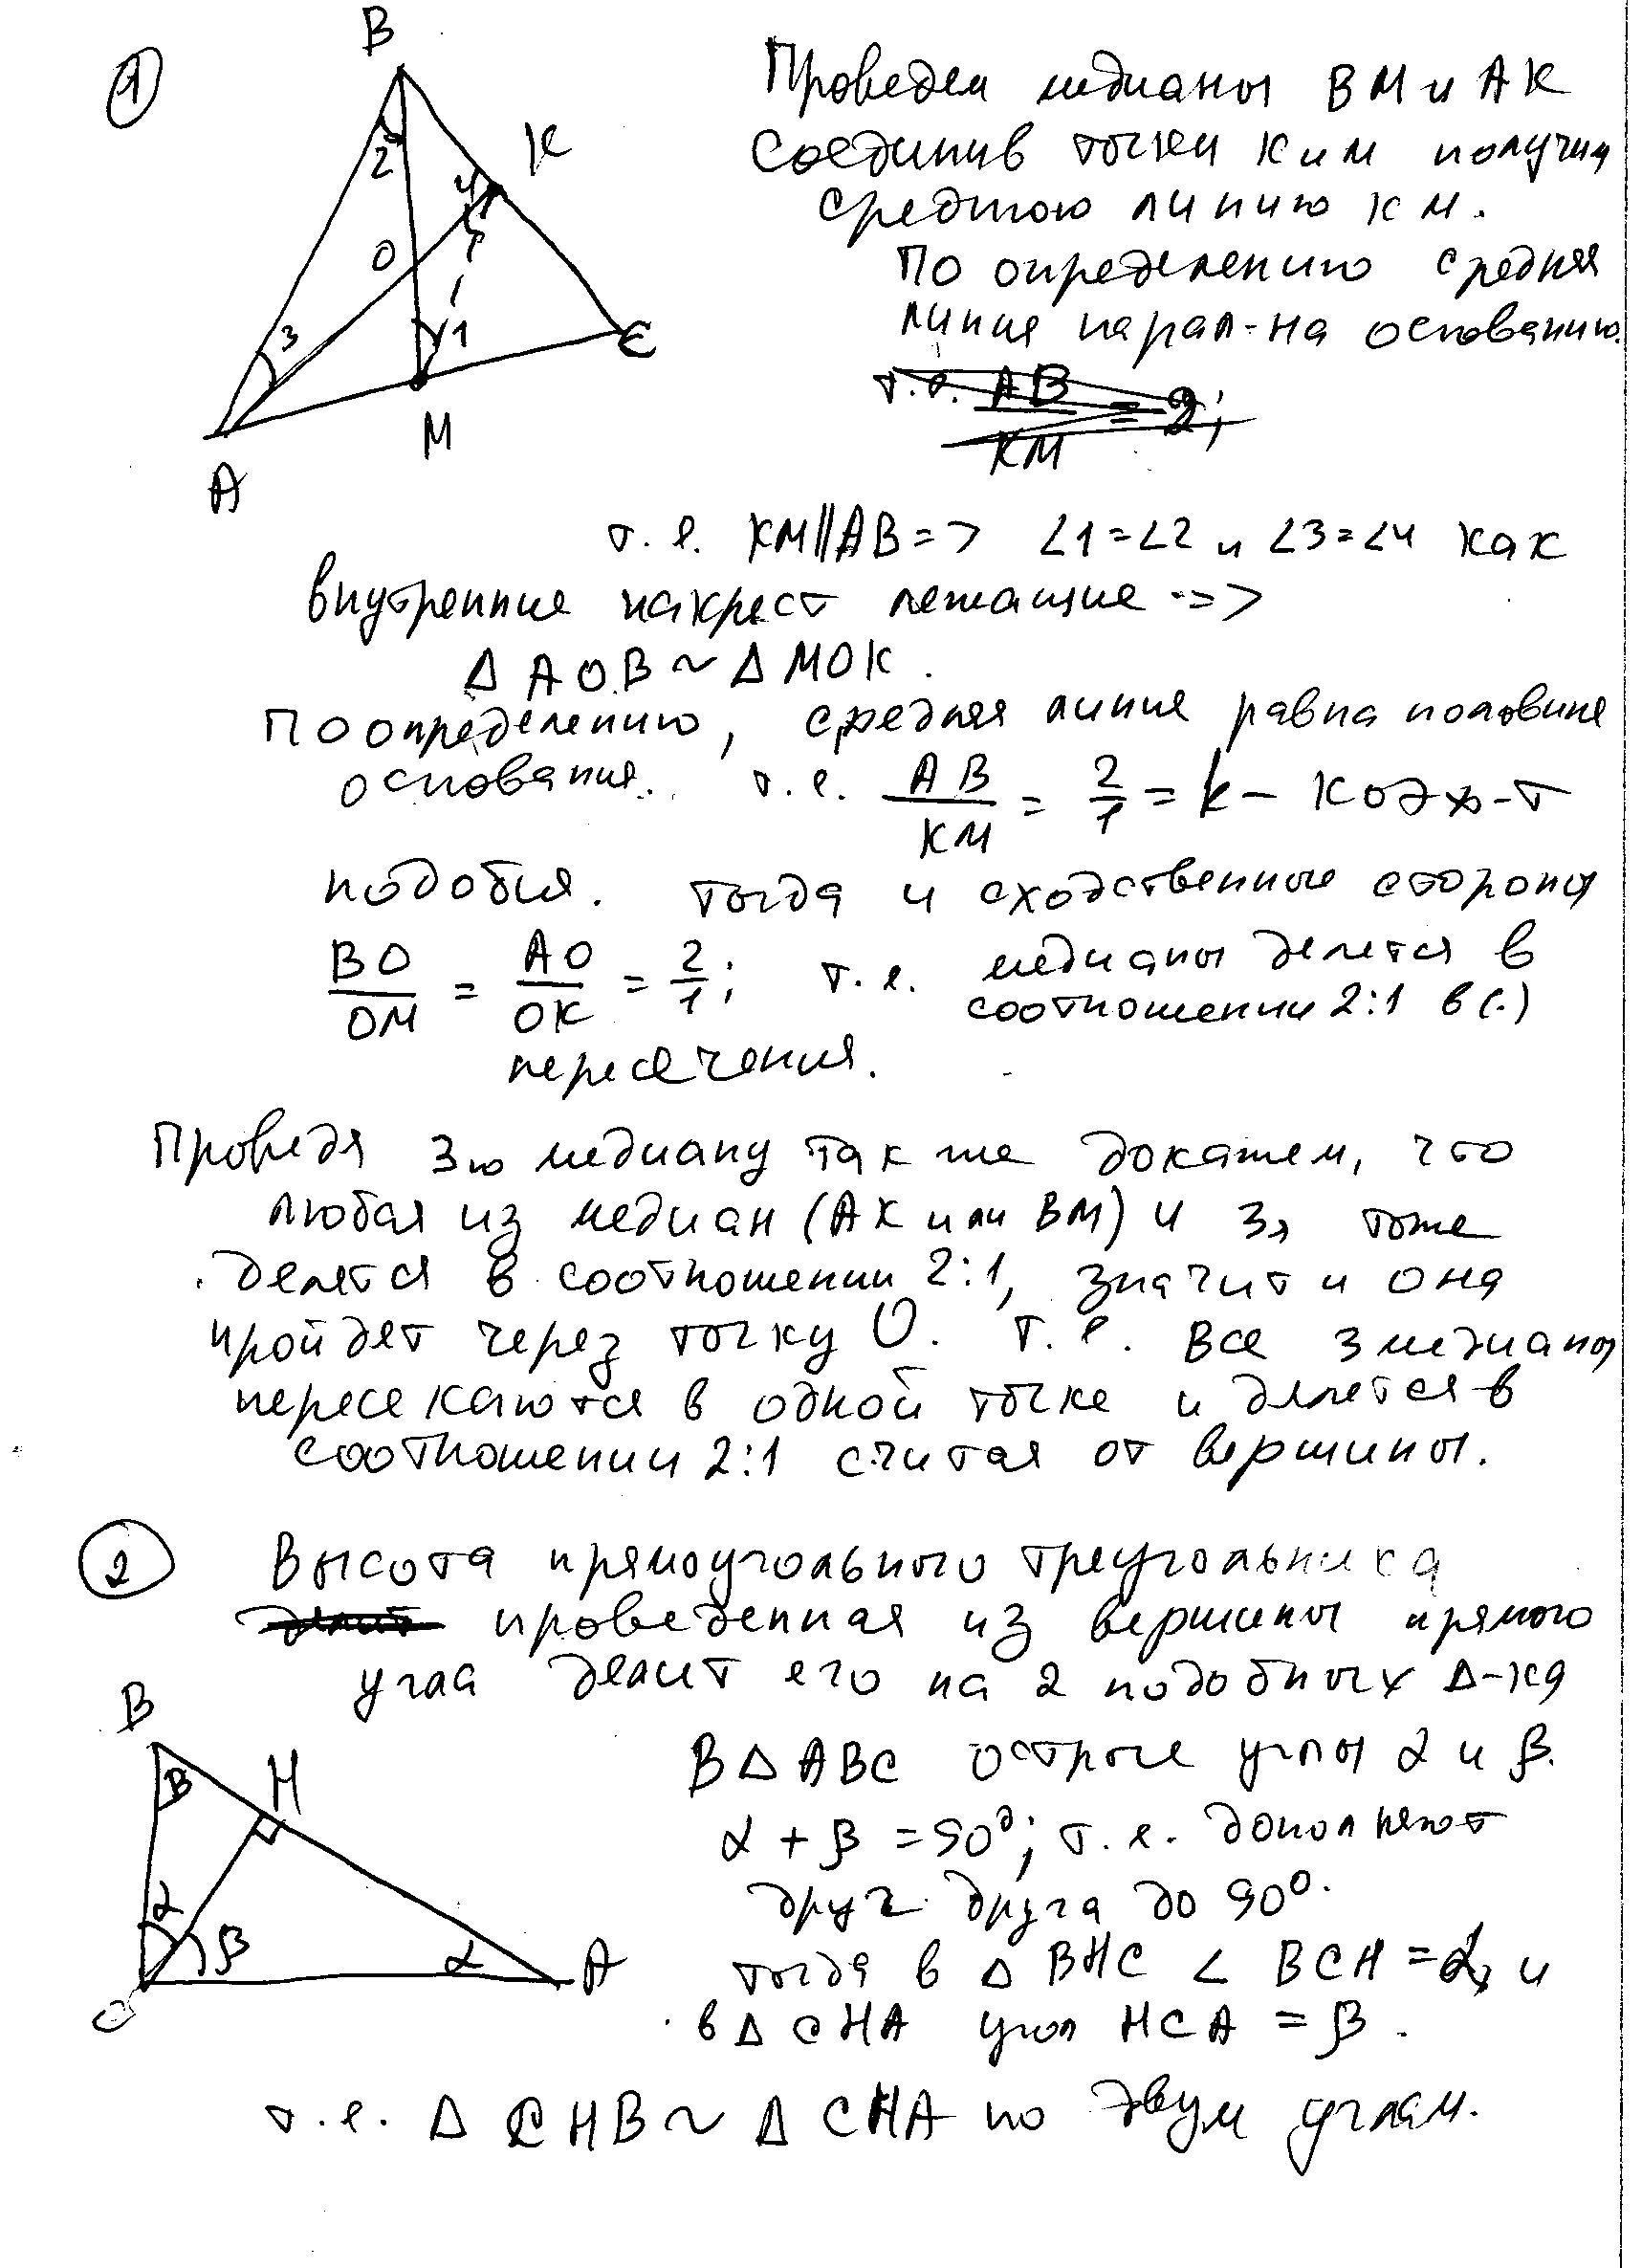 1
B
K
2
4
O
3
1
C
M
A
Проведем медианы BM и AK
Соединив точки K и M получим
среднюю линию KM.
По определению средняя
линия парал-на основанию.
т.е. AB/KM = 2;
т.е. KM||AB => ∠1=∠2 и ∠3=∠4 как
внутренние накрест лежащие =>
Δ AOB ~ Δ MOK.
По определению, средняя линия равна половине
основания. т.е. AB/KM = 2/1 = k – коэф-т
подобия. Тогда и сходственные стороны
BO/OM = AO/OK = 2/1; т.е. медианы делятся в
соотношении 2:1 в (.)
пересечения.
Проведя 3ю медиану так же докажем, что
любая из медиан (AK или BM) и 3я тоже
делятся в соотношении 2:1, значит и она
пройдет через точку O. Т.е. все 3 медианы
пересекаются в одной точке и делятся в
соотношении 2:1 считая от вершины.
2
Высота прямоугольного треугольника
делит проведенная из вершины прямого
угла делит его на 2 подобных Δ-ка
B
β
H
α
β
α
A
C
В Δ ABC острые углы α и β.
α + β = 90°; т.е. дополняют
друг друга до 90°.
тогда в Δ BHC ∠ BCH = α, и
в Δ CHA угол HCA = β.
т.е. Δ CHB ~ Δ CHA по двум углам.